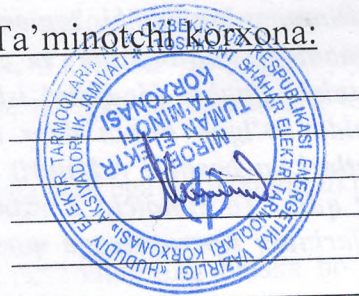 Ta’minotchi korxona:
O‘ZBEKISTON RESPUBLIKASI ENERGETIKA VAZIRLIGI
«HUDUDIY ELEKTR TARMOQLARI» AKSIYADORLIK JAMIYATI
TOSHKENT SHAHAR ELEKTR TARMOQLARI KORXONASI
MIROBOD
TUMAN ELEKTR
TA’MINOTI
KORXONASI